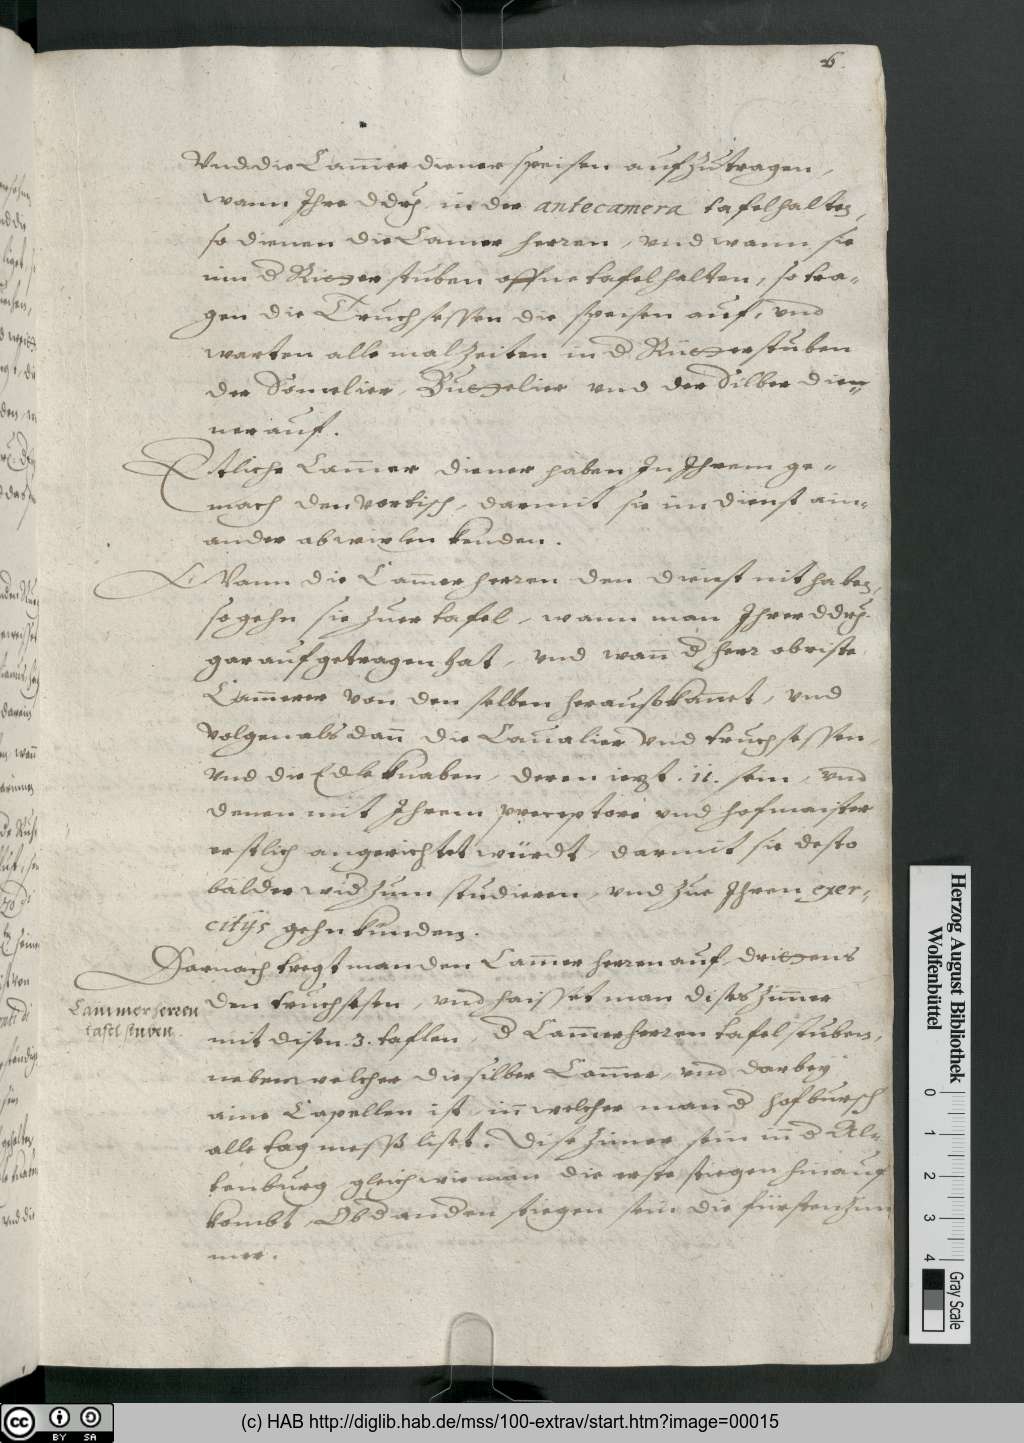 6.
Vnd die Cam̄er diener speisen aufzutragen,
wann Ihre ddrh. in der antecamera tafel halten,
so dienen die Camer herren, vnd wann sie
inn d Ritterstuben offne tafel halten, so tra-
gen die Truchsessen die speisen auf, vnd
warten alle malzeiten in d Ritterstuben
der Somelier, Buttelier vnd der Silber dien-
ner auf.
Etliche Cam̄er diener haben In Ihrem ge-
mach den vortisch, darmit sie im dienst ain-
ander abwixlen kenden.
Wann die Cam̄erherren den dienst nit haben,
so gehn sie zuer tafel, wann man Ihrer ddrh.
gar aufgetragen hat, vnd wan̄ d herr obriste
Cam̄erer von denselben herauskom̄et, vnd
volgen als dan̄ die Caualier vnd truchsessen,
vnd die Edle knaben, deren iezt .11. sein, vnd
denen mit Ihrem preceptore vnd hofmaister
erstlich angerichtet würdt, darmit sie desto
bälder wid zum studieren, vnd zue Ihren exer-
citijs gehn künden.
Darnach tregt man den Cam̄er herren auf, drittens
den truchsesen, vnd haisset man dises zim̄er
mit disen .3. taflen, d Cam̄erherren tafel stuben,
neben welcher die silber Cam̄er, vnd darbey
aine Capellen ist, in̄ welcher man d hofbursch
alle tag mess list. Dise zim̄er sein in̄ d Al-
tenburg gleich wie man die erste stiegen hinauf
kombt, Ob d anden stiegen sein die fürstenzim
mer.
Cammerherren
tafel stuben.
Herzog August Bibliothek
Wolfenbüttel
0 1 2 3 4
Gray Scale
cc BY SA
(c) HAB http://diglib.hab.de/mss/100-extrav/start.htm?image=00015